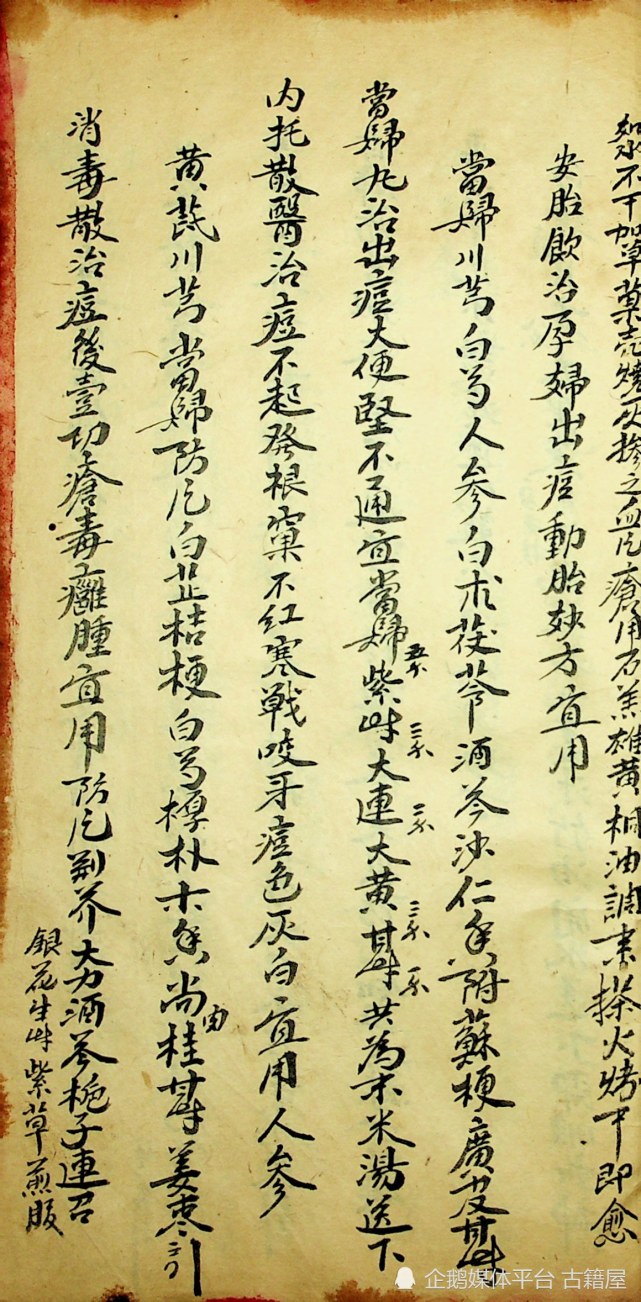 不干加草菓壳燒灰摻之血瘡用石羔雄黄桐油調末搽火烤干即愈
安胎飲治孕婦出痘動胎妙方宜用
當歸川芎白芍人參白朮茯苓酒芩沙仁香附蘇梗廣皮甘草
當歸丸治出痘大便堅不通宜當歸五錢紫草三錢大連二錢大黄三錢甘草一錢共為末米湯送下
内托散醫治痘不起發根窠不红寒戰咬牙痘色灰白宜用人參
黄芪川芎當歸防风白芷桔梗白芍樸朴木香尚肉桂甘草姜枣引
消毒散治痘後壹切瘡毒癰腫宜用防风荆芥大力酒芩梔子連召
銀花生草紫草煎服
企鹅媒体平台 古籍屋